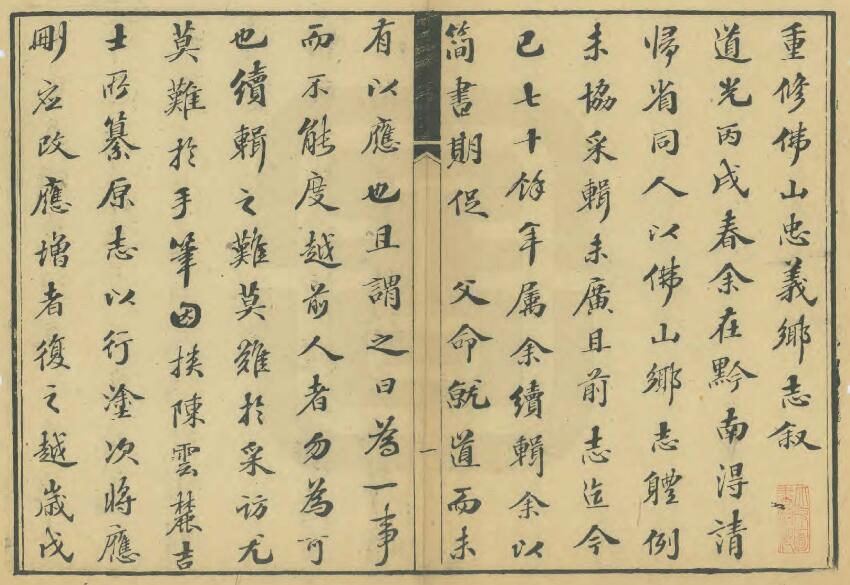 重修佛山忠義鄉志叙
道光丙戌春余在黔南得請
歸省同人以佛山鄉志體例
未協采輯未廣且前志迄今
已七十餘年属余續輯余以
简書期促 父命就道而未
一
有以應也且謂之曰為一事
而不能度越前人者勿為可
也續輯之難莫難於采訪尤
莫難於手筆因挟陳雲麓吉
士所纂原志以行塗次将應
刪應改應增者復之越歲戊